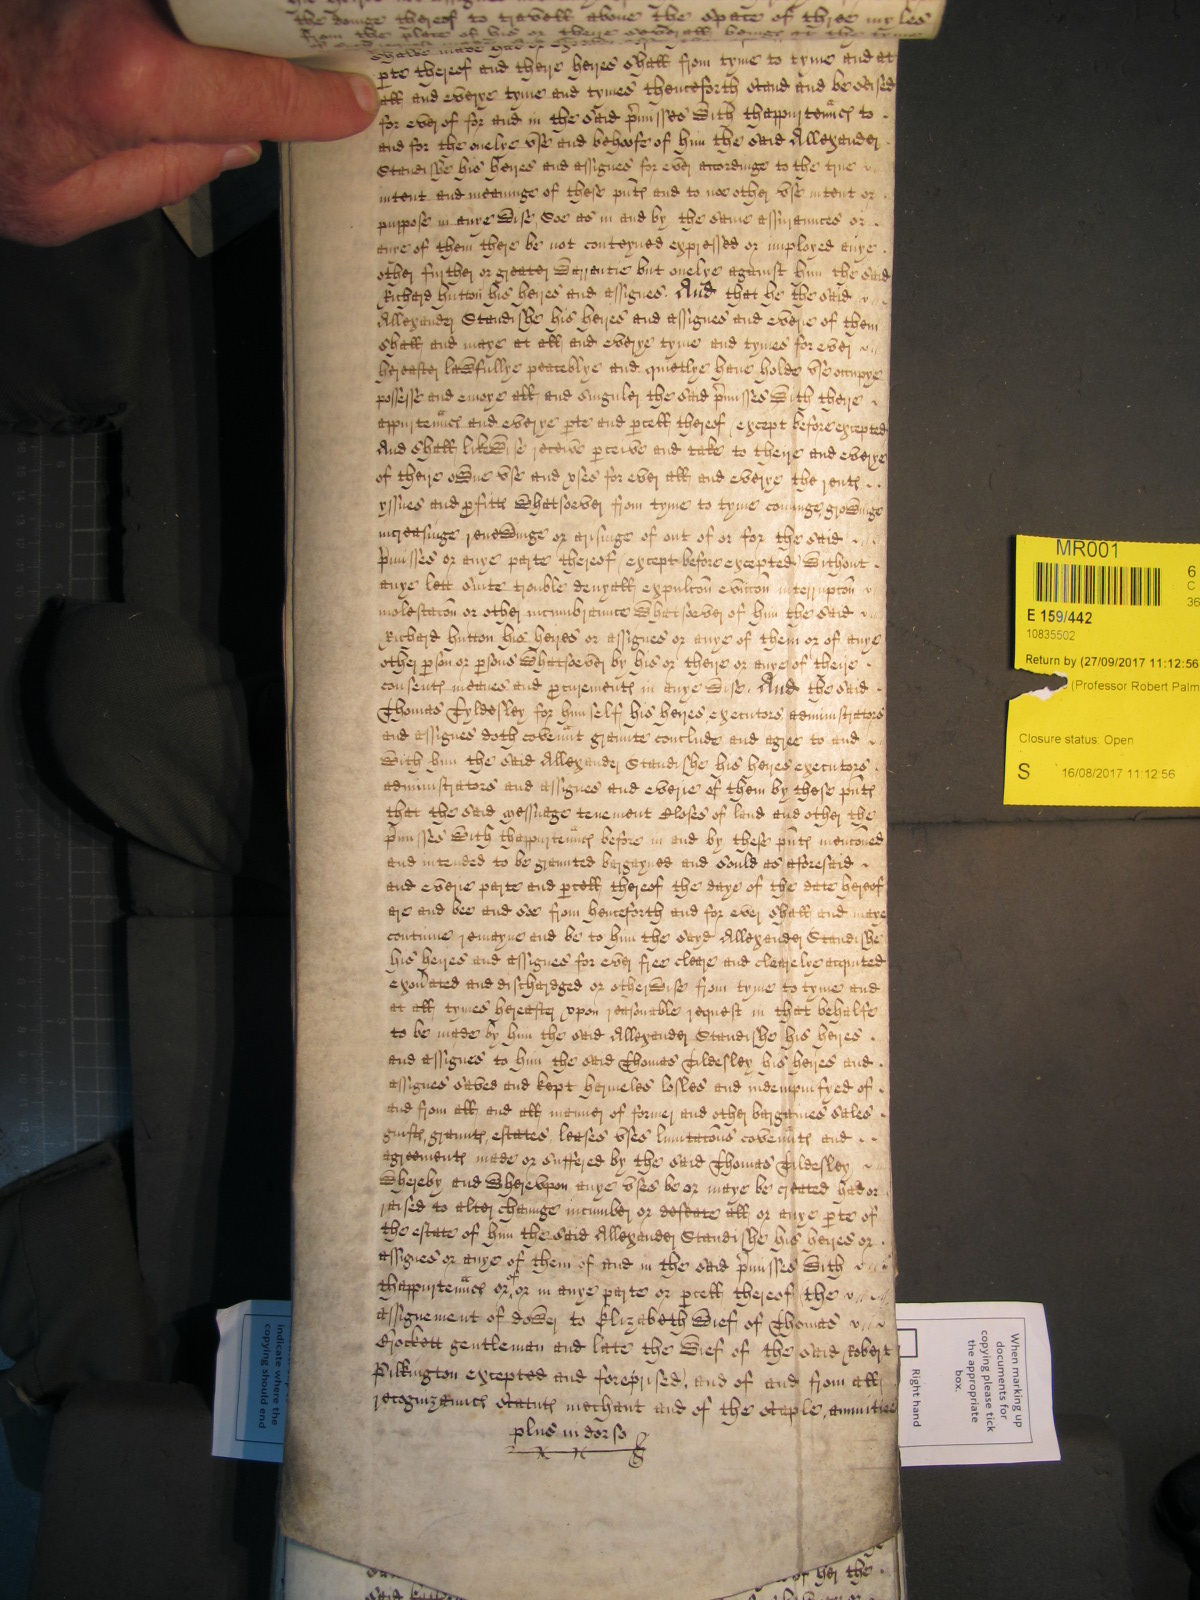 the doinge thereof to travell above the space of three myles
from the place of his or theire severall beinge at the tyme
shalbe made had or
pte thereof and theire heires shall from tyme to tyme and at
all and everye tyme and tymes thenceforth stand and be seised
for ever of for and in the said pmisses with thappurtenncs to
and for the onelye use and behoofe of him the said Allexander
Standishe his heires and assignes for ever accordinge to the true
intent and meaninge of these pnts and to noe other use intent or
purpose in anye wise, Soe as in and by the same assurances or
anye of them there be not conteyned expressed or implyed anye
other further or greater warrantie but onelye against him the said
Richard hutton his heires and assignes. And that he the said
Allexander Standishe his heires and assignes and everie of them
shall and maye at all and everye tyme and tymes for ever
hereafter lawfullye peaceblye and quietlye have holde use occupye
possesse and enioye all and singuler the said pmisses with theire
appurtenncs and everye pte and pcell thereof, except before excepted
And shall likewise receive pceive and take to theire and everye
of theire owne use and uses for ever all and everye the rents
yssues and pfitts whatsoever from tyme to tyme cominge, growinge
increasinge renewinge or arisinge of out of or for the said
pmisses or anye parte thereof, except before excepted, without
anye lett suite trouble denyall expulcon eviccon interrupcon
molestacon or other incumbrannce whatsoever of him the said
Richard hutton his heires or assignes or anye of them or of anye
other pson or psons whatsoever by his or theire or anye of theire
consents meanes and pcurements in anye wise. And the said
Thomas Tyldesley for him self his heires executors administrators
and assignes doth covennt graunte conclude and agree to and
with him the said Allexander Standishe his heires executors
administrators and assignes and everie of them by these pnts
that the said messuage tenement closes of land and other the
pmisses with thappurtenncs before in and by these pnts mencioned
and intended to be graunted bargayned and sould as aforesaid
and everie parte and pcell thereof the daye of the date hereof
are and bee and soe from henceforth and for ever shall and maye
continue remayne and be to him the sayd Allexander Standishe
his heires and assignes for ever free cleare and clearelye acquited
exonated and dischardged or otherwise from tyme to tyme and
at all tymes hereafter upon reasonable request in that behalfe
to be made by him the said Allexander Standishe his heires
and assignes to him the said Thomas Tildesley his heires and
assignes saved and kept harmeles losles and indempnifyed of
and from all and all manner of former and other bargaines sales
guifts, graunts, estates, leases uses limitacons covennts and
agreements made or suffered by the said Thomas Tildesley
whereby and whereupon anye uses be or maye be created had or
raised to alter change incumber or defeate all or anye pte of
the estate of him the said Allexander Standishe his heires or
assignes or anye of them of and in the said pmisses with
thappurtenncs or of or in anye parte or pcell thereof (the
assignement of dower to Elizabeth wief of Thomas
Crockett gentleman and late the wief of the said Robert
Pilkington excepted and foreprised, and of and from all
recognizances Statuts merchant and of the Staple, annuities
plus in dorso
MR001
6
C
36
E 159/442
10835502
Return by (27/09/2017 11:12:56
(Professor Robert Palm
Closure status: Open
S 16/08/2017 11:12:56
indicate where the
copying should end
When marking up
documents for
copying please tick
the appropriate
box.
Right hand
of her the
said